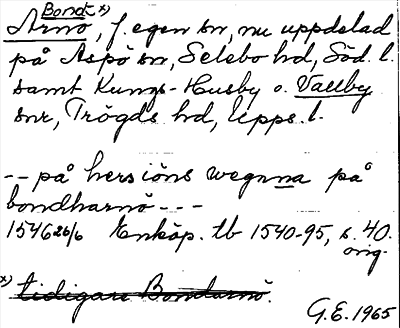 Bondx)
Arnö, f. egen sn, nu uppdelad
på Aspö sn, Selebo hd, Söd. l.
samt Kungs-Husby o. Vallby
snr, Trögds hd, Upps. l.
-- på hersiöns wegnna på
bondharnö ---
1546 26/6 Enköp. tb 1540-95, s. 40.
orig.
x) tidigare Bondarnö.
G.E. 1965